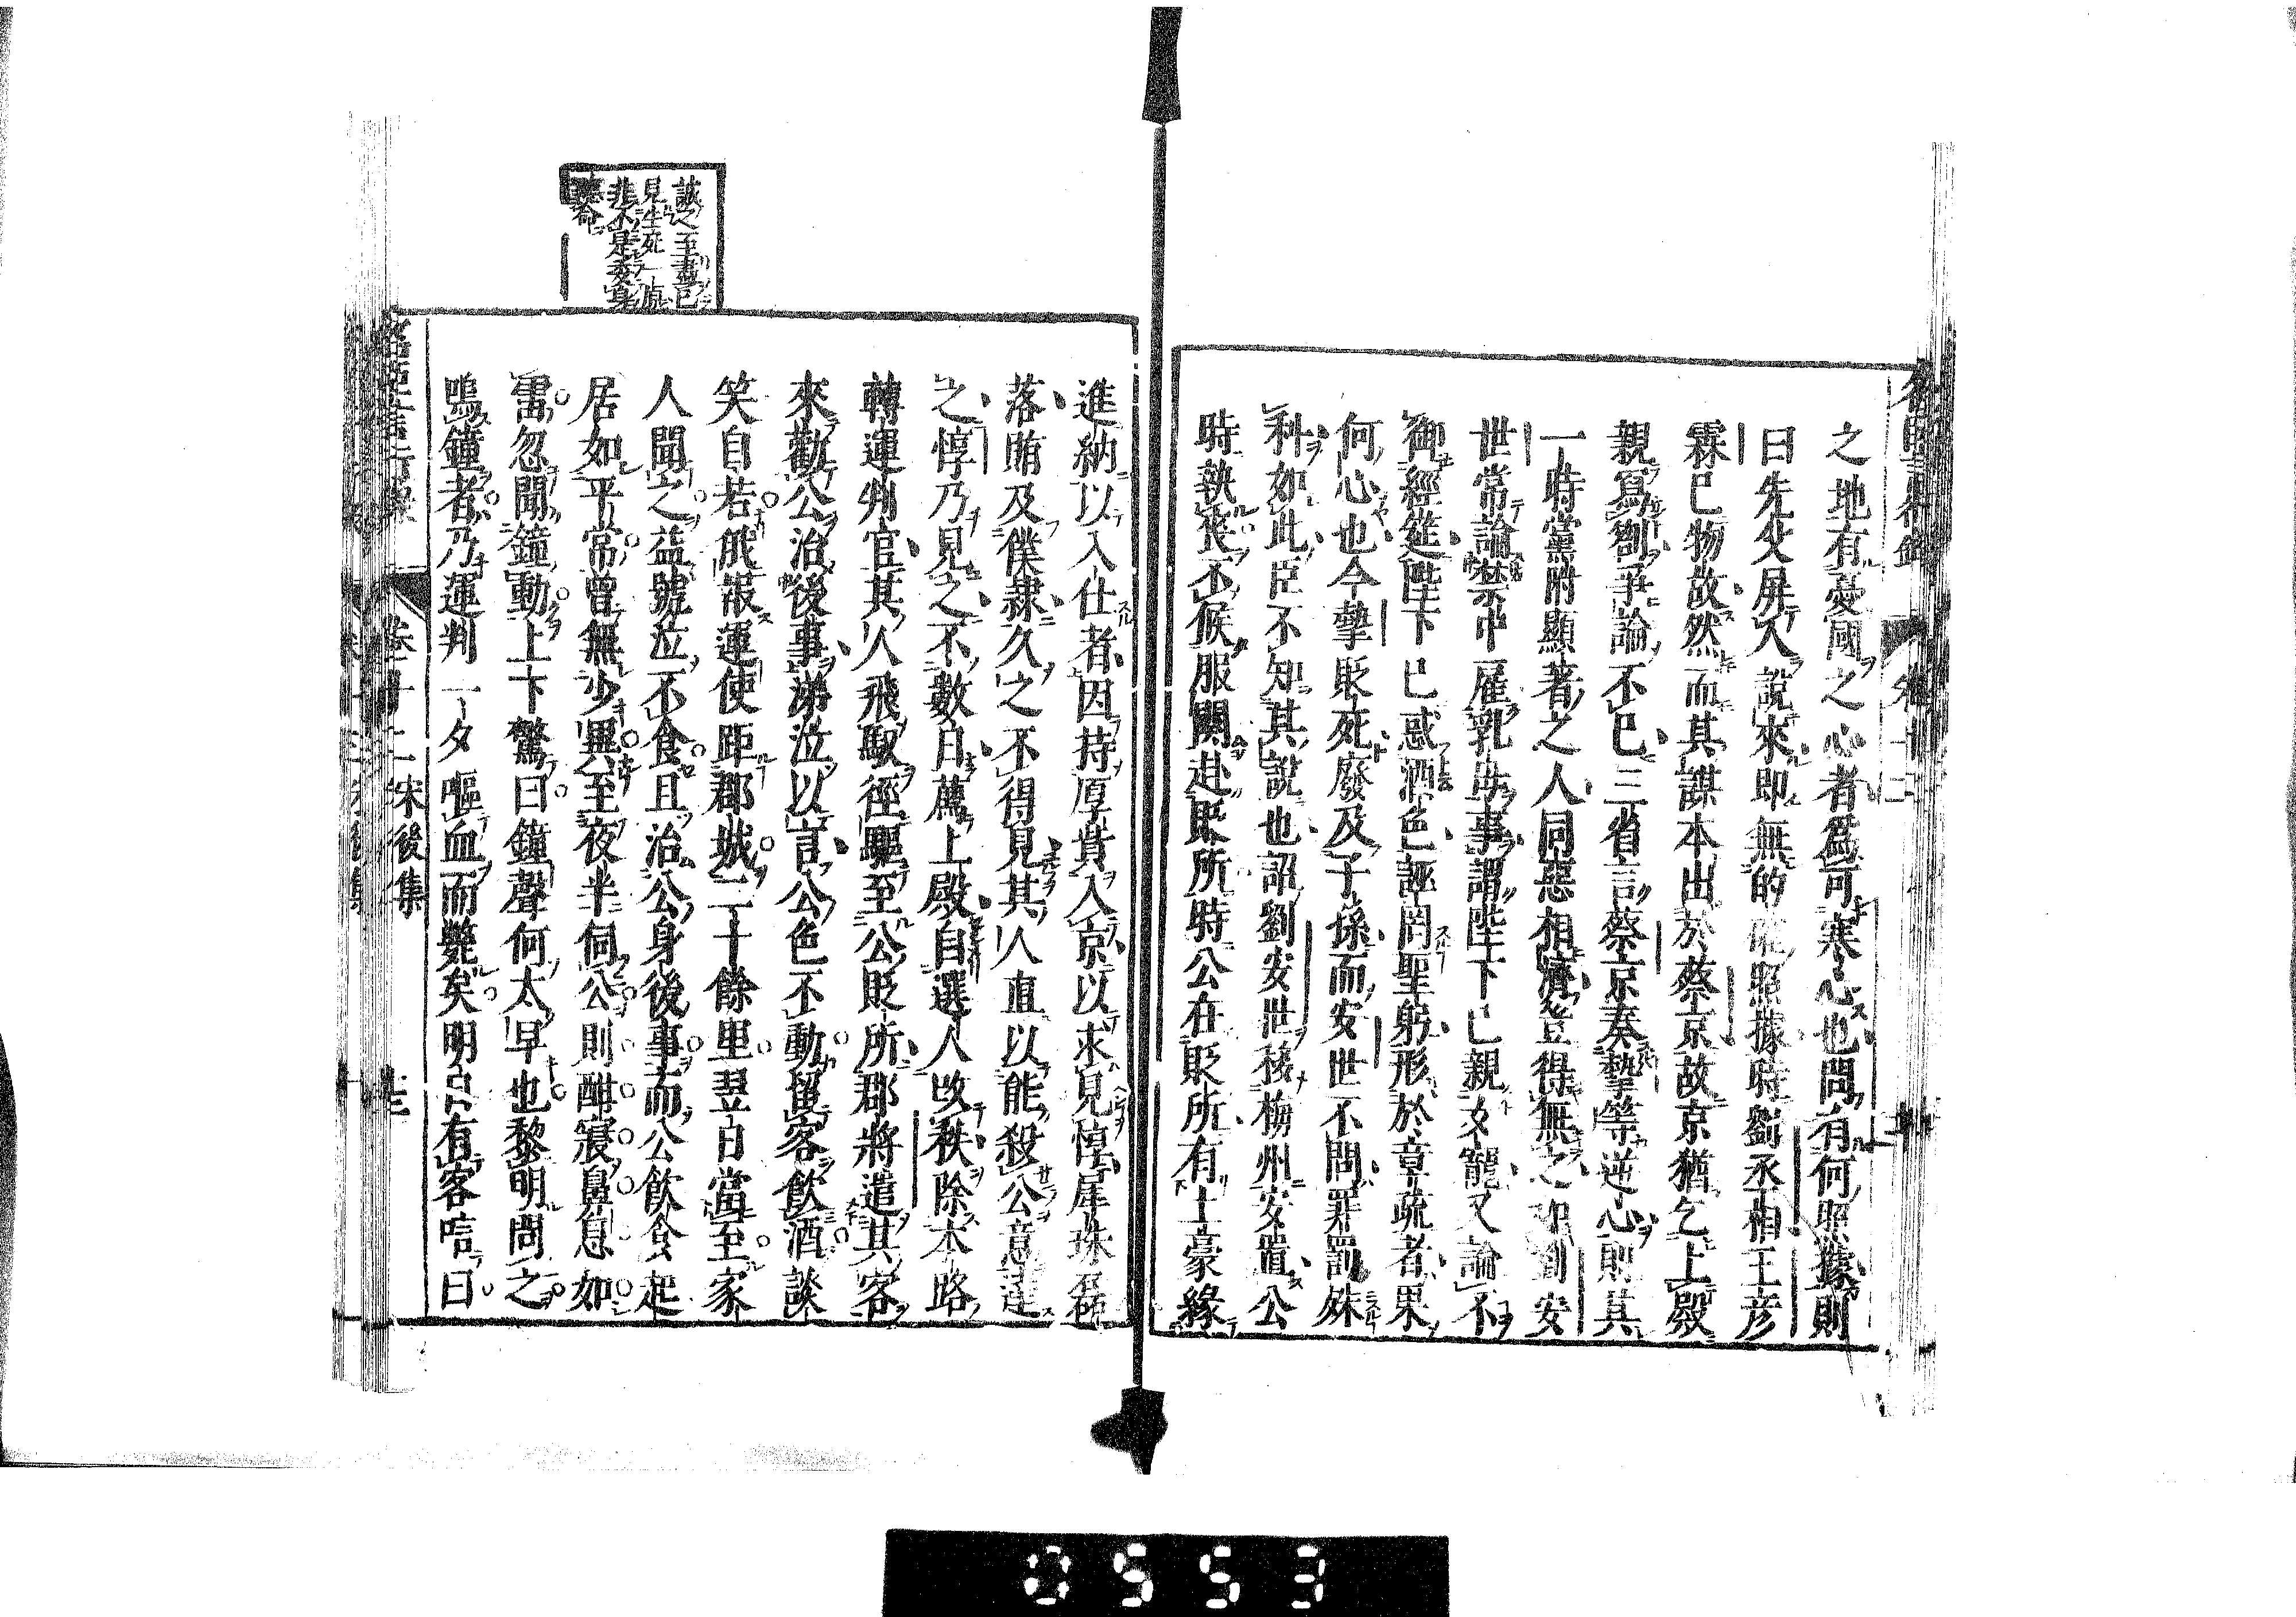 之地有憂國之心者爲可寒心也問有何照據則
曰先父屏人說來即無的確照據時劉丞相王彦
霖已物故然而其謀本出於蔡京故京猶乞上殿
親寫劄爭論不已三省言蔡京奏摯等逆心則其
一時黨附顯著之人同惡相濟豈得無之如劉安
世常論禁中雇乳母事謂陛下已親女寵又論不
御經筵陛下已惑酒色誣罔聖躬形於章疏者果
何心也今摯貶死廢及子孫而安世不問罪罰殊
科如此臣不知其說也詔劉安世移梅州安置公
時執喪不候服闋赴貶所時公在貶所有土豪緣
誠之至畫已
見生死一原
非不是委身
聽命
進納以入仕者因持厚貲入京以求見惇犀珠磊
落賄及僕隸久之不得見其人直以能殺公意達
之惇乃見之不數日薦上殿自選人改秩除本路
轉運判官其人飛馭徑驅至公貶所郡將遣其客
來勸公治後事涕泣以言公色不動留客飲酒談
笑自若俄報運使距郡城二十餘里翌日當至家
人聞之益號泣不食且治公身後事而公飲食起
居如平常曾無少異至夜半伺公則酣寢鼻息如
雷忽聞鐘動上下驚曰鐘聲何太早也黎明問之
鳴鐘者乃運判一夕嘔血而斃矣明日有客唁曰
卷十二 宋後集
0553